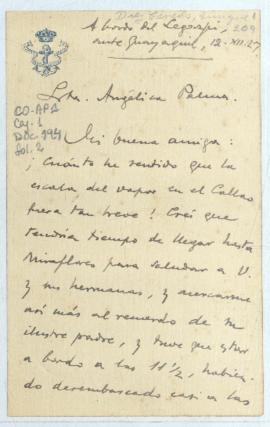 Díez Canedo, Enrique
A bordo del Legazpi, 209
ante Guayaquil, 12-XII-27
Srta. Angélica Palma.
CO-AP2
Caj. 1
Doc.
Fol. 2
Mi buena amiga:
¡Cuánto he sentido que la
escala del vapor en el Callao
fuera tan breve! Creí que
tendría tiempo de llegar hasta
Miraflores para saludar a V.
y sus hermanas, y acercarme
así más al recuerdo de su
ilustre padre, y tuve que estar
a bordo a las 11½, habien-
do desembarcado casi a las